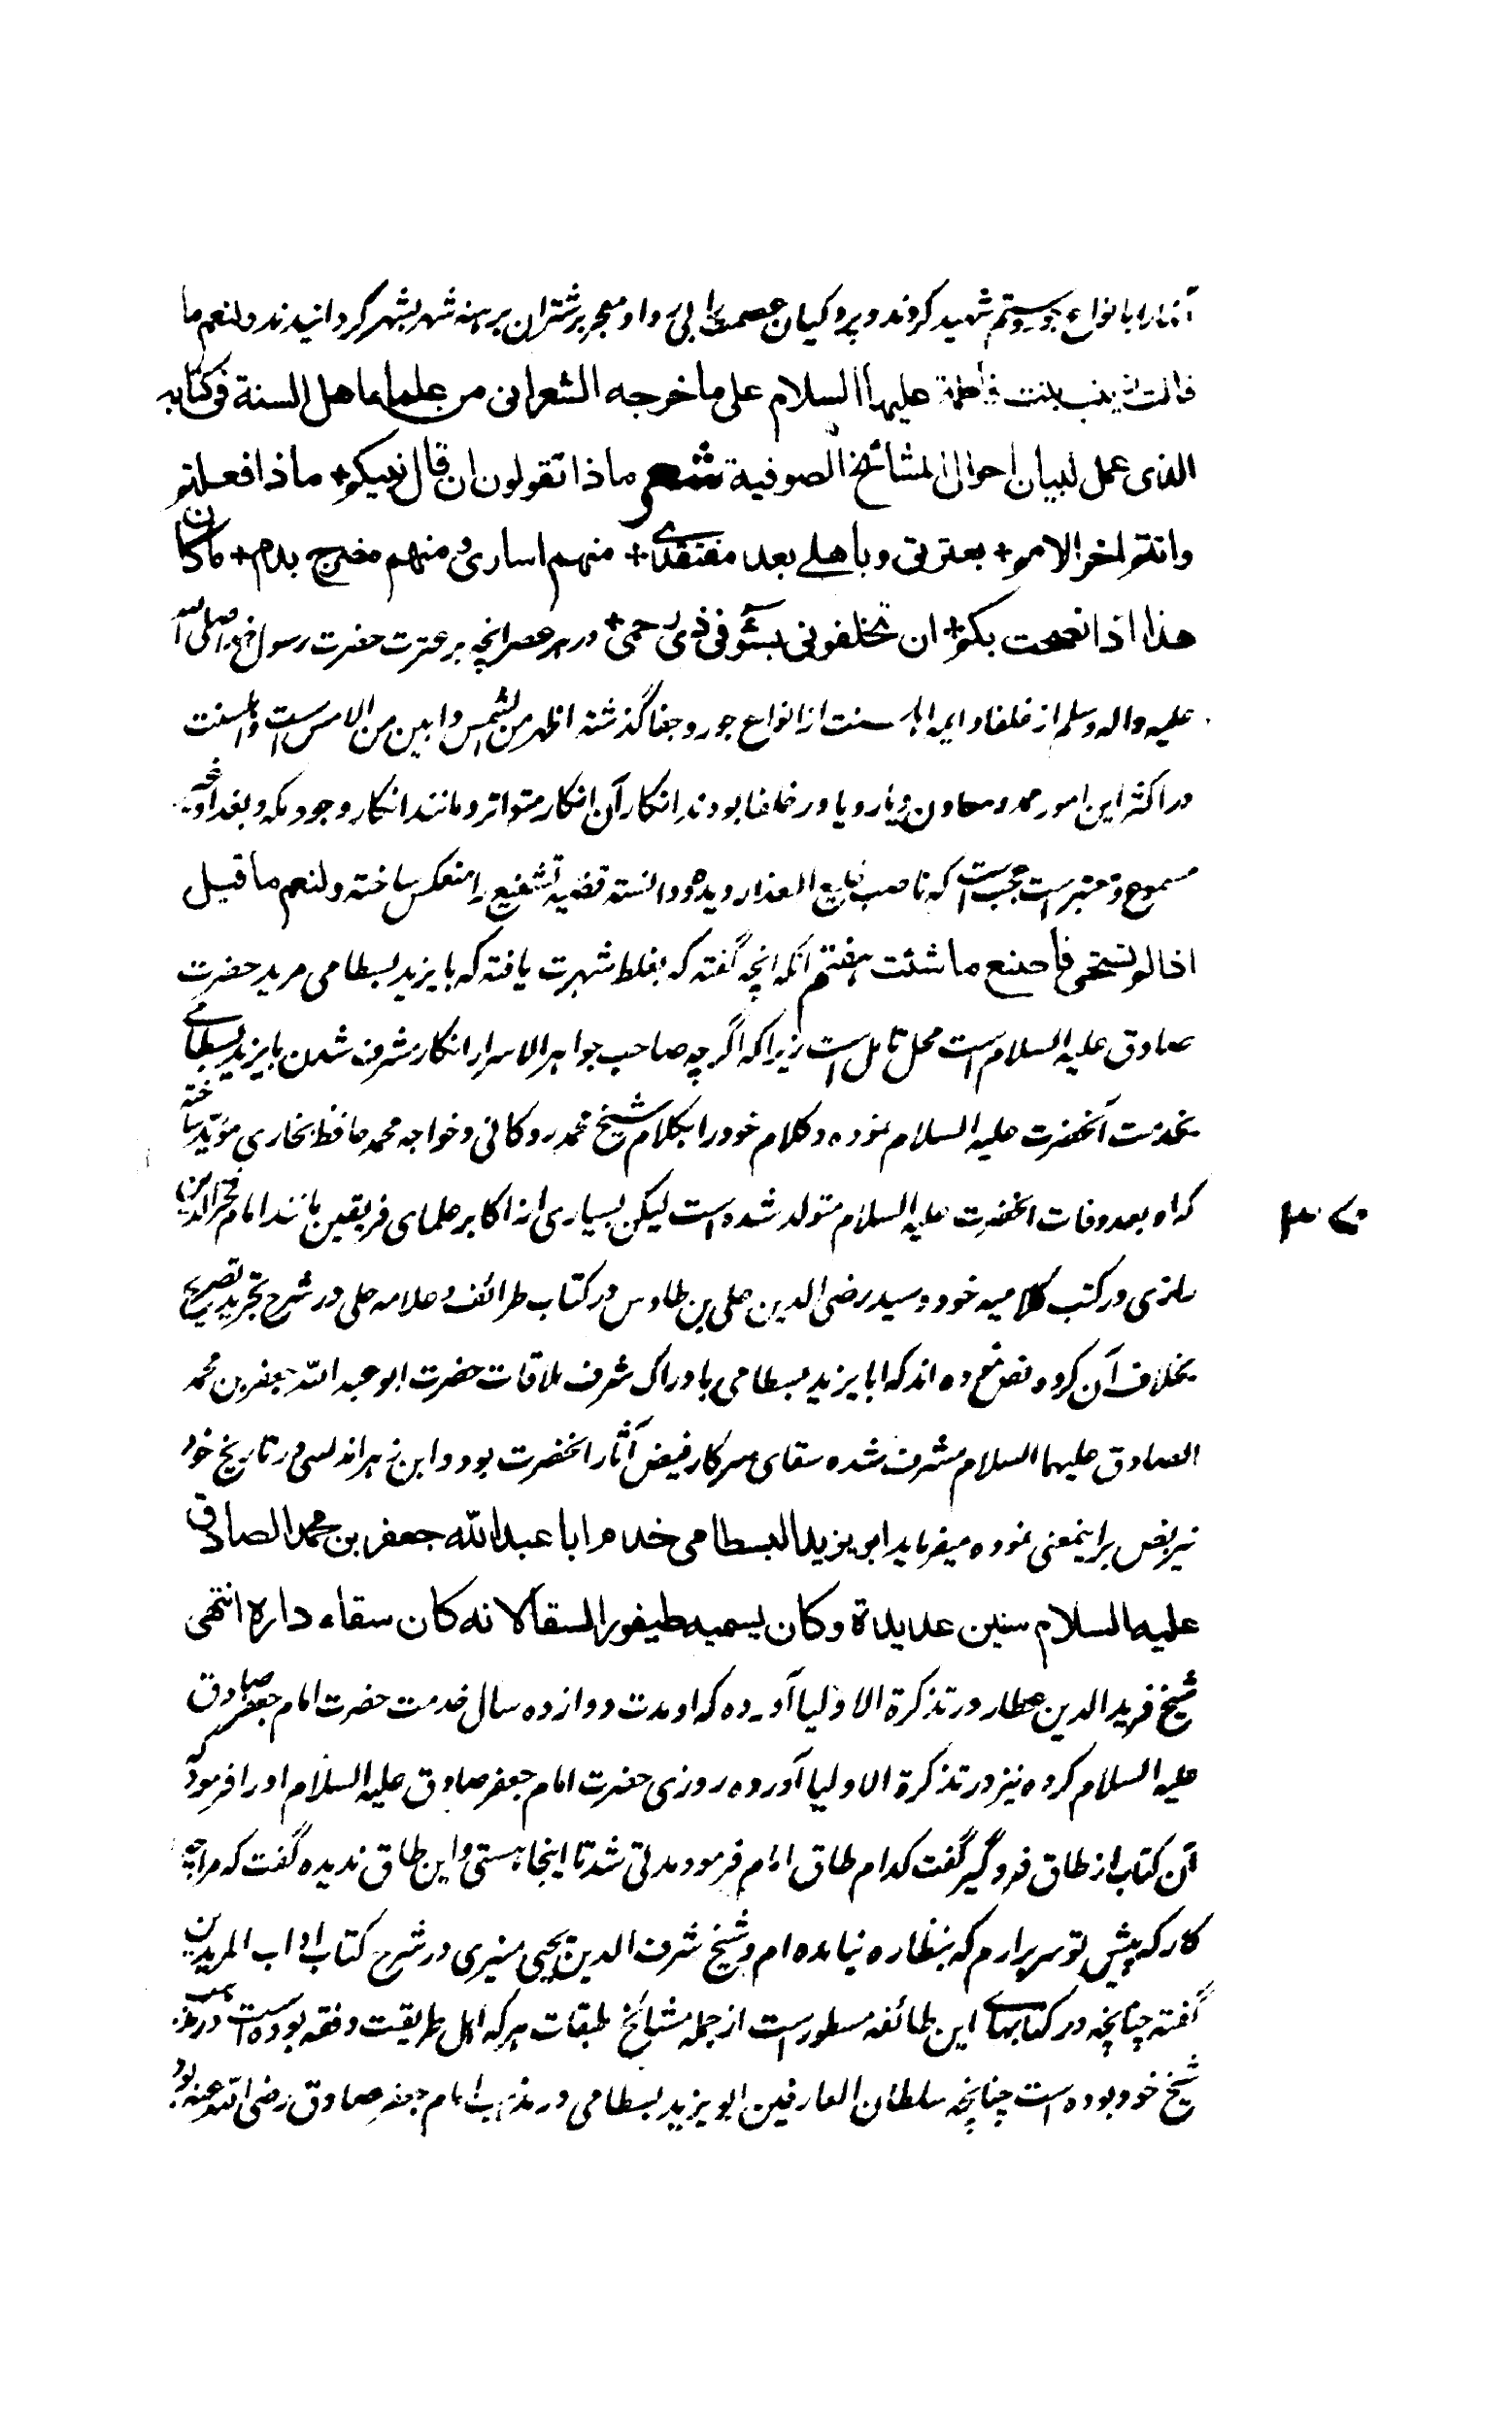 آنها را بانواع جور و ستم شهید کردند و پردکیان عصمت را بی ردا و معجر بر شتران برهنه شهر بشهر گردانیدند و لنعم ما
قالت زینب بنت فاطمة علیهما السلام علی ما اخرجه الشعرانی من علماء اهل السنة فی کتابه
الذی عمل لبیان احوال المشائخ الصوفیة شعر ماذا تقولون ان قال نبیکم + ماذا فعلتم
وانتم اخر الامم + بعترتی و باهلی بعد مفتقدی + منهم اساری و منهم مضرج بدم + ما کان
هذا اذ انصحت بکم + ان تخلفونی بسوء فی ذی رحمی + در هر عصر انچه بر عترت حضرت رسول خدا صلی الله
علیه واله وسلم از خلفا و ایمه اهل سنت از انواع جور و جفا گذشته اظهر من الشمس و ابین من الامس است و اهلسنت
در اکثر این امور ممد و معاون و یار و یاور خلفا بودند انکار آن انکار متواتر و مانند انکار وجود مکه و بغداد غیر
مسموع و معتبر است عجب است که ناصب خلیع العذار دیده و دانسته قضیه تشنیع را منعکس ساخته و لنعم ما قیل
اذا لم تستحی فاصنع ما شئت هفتم آنکه انچه گفته که بغلط شهرت یافته که بایزید بسطامی مرید حضرت
صادق علیه السلام است محل تامل است زیرا که اگرچه صاحب جواهر الاسرار انکار مشرف شدن بایزید بسطامی
بخدمت آنحضرت علیه السلام نموده و کلام خود را بکلام شیخ محمد روکانی و خواجه محمد حافظ بخاری مؤید ساخته
که او بعد وفات انحضرت علیه السلام متولد شده است لیکن بسیاری از اکابر علمای فریقین مانند امام فخر الدین
رازی در کتب کلامیه خود و سید رضی الدین علی بن طاوس در کتاب طرائف و علامه حلی در شرح تجرید تصریح
بخلاف آن کرده و نص نموده اند که ابا یزید بسطامی بادراک شرف ملاقات حضرت ابو عبد الله جعفر بن محمد
الصادق علیهما السلام مشرف شده سقای سرکار فیض آثار انحضرت بود و ابن زهر اندلسی در تاریخ خود
نیز نص بر اینمعنی نموده میفرماید ابو یزید البسطامی خدم ابا عبدالله جعفر بن محمد الصادق
علیه السلام سنین عدیدة وکان یسمیه طیفور السقا لانه کان سقاء داره انتهی
شیخ فرید الدین عطار در تذکرة الاولیا آورده که او مدت دوازده سال خدمت حضرت امام جعفر صادق
علیه السلام کرده نیز در تذکرة الاولیا آورده روزی حضرت امام جعفر صادق علیه السلام او را فرمود که
آن کتاب از طاق فرو گیر گفت کدام طاق امام فرمود مدتی شد تا اینجا هستی و این طاق ندیده گفت که مرا چه
کار که پیش تو سر برارم که بنظاره نیامده ام و شیخ شرف الدین یحیی منیری در شرح کتاب اداب المریدین
گفته چنانچه در کتابهای این طائفه مسطور است از جمله مشائخ طبقات هر که اهل طریقت و فقه بوده است در مذهب
شیخ خود بوده است چنانچه سلطان العارفین ابو یزید بسطامی در مذهب امام جعفر صادق رضی الله عنه بود